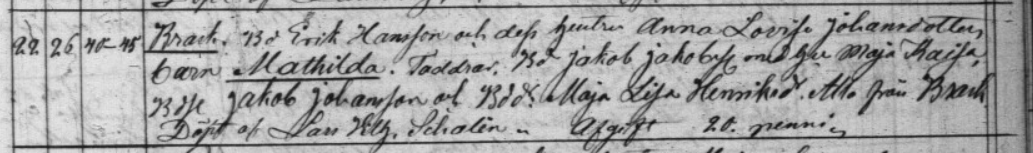 22. 26 40-45 Brack. Bd Erik Hansson och dess hustru Anna Lovisa Johansdotters
barn Mathilda. Faddrar. Bd Jakob Jakobss. med hu Maja Kaisa,
Bdss Jakob Johansson och Bdd. Maja Lisa Henriksd. Alla från Brack
Döpt af Lars Schalén Afgift 20. penni